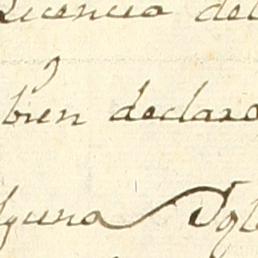 Licencia del
bien declaro
lguna Igle